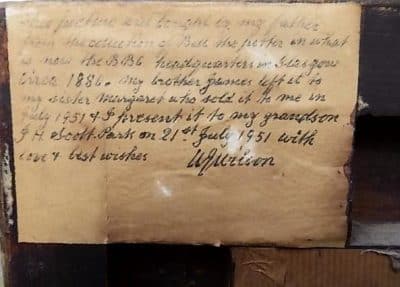 This picture was bought by my father
from the collection of Bell the potter in what
is now the BBC headquarters in Glasgow
circa 1886. My brother James left it to
my sister Margaret who sold it to me in
July 1951 & I present it to my grandson
J H Scott Park on 21st July 1951 with
love & best wishes